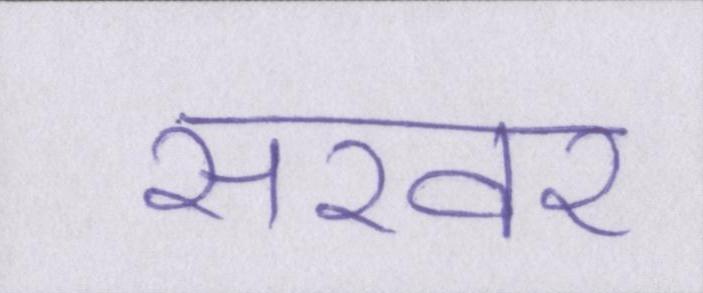 सरवर